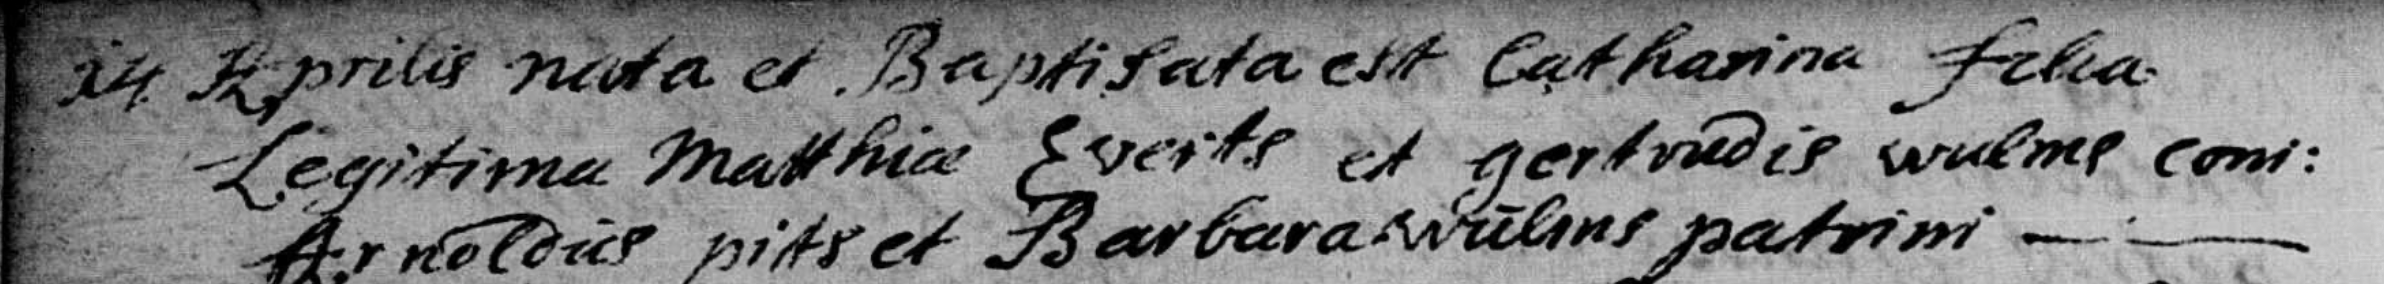 14. Aprilis nata et Baptisata est Catharina filia
Legitima Matthiæ Everts et gertrudis wulms coni:
Arnoldus pits et Barbara wulms patrini